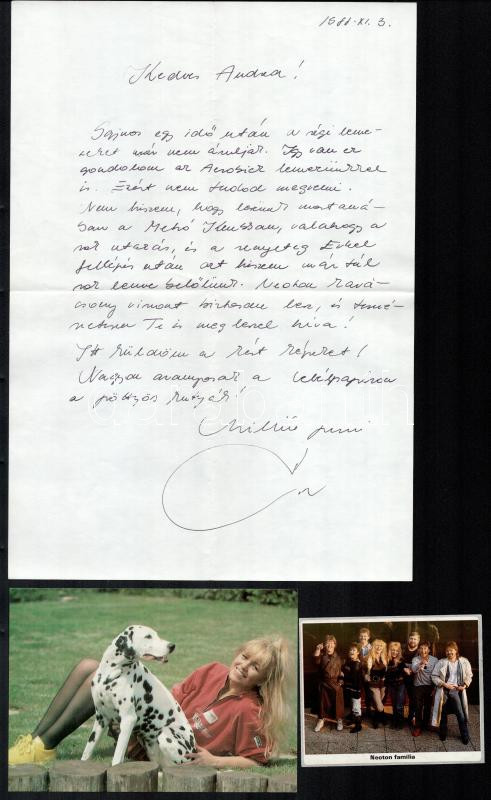 1988. XI. 3.
Kedves Andrea!
Sajnos egy idő után a régi leme-
zeket már nem árulják. Így van ez
gondolom az Aerobick lemezünkkel
is. Ezért nem tudod megvenni.
Nem hiszem, hogy leszünk mostaná-
ban a Metró Klubban, valahogy a
sok utazás, és a rengeteg Erkel
fellépés után azt hiszem már túl
sok lenne belőlünk. Neoton Kará-
csony viszont biztosan lesz, és termé-
szetesen Te is meg leszel híva!
Itt küldöm a kért képeket!
Nagyon aranyosak a levélpapíron
a pöttyös kutyák!
puszi
Neoton família